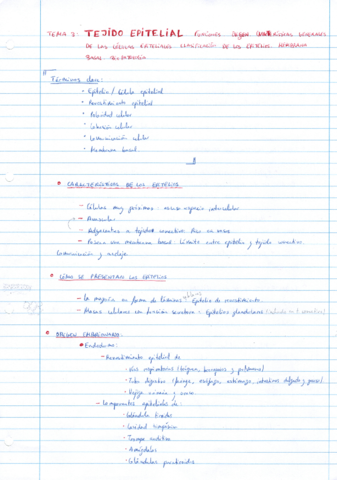 TEMA 3: TEJIDO EPITELIAL FUNCIONES ORIGEN CARACTERÍSTICAS GENERALES
DE LAS CÉLULAS EPITELIALES CLASIFICACIÓN DE LOS EPITELIOS MEMBRANA
BASAL
Términos clave:
· Epitelio / Célula epitelial
· Revestimiento epitelial
· Polaridad celular
· Cohesión celular
· Comunicación celular
· Membrana basal
CARACTERÍSTICAS DE LOS EPITELIOS
- Células muy próximas: escaso espacio intercelular
- Avascular
- Adyacentes a tejidos conectivos rico en vasos
- Poseen una membrana basal: Límite entre epitelio y tejido conectivo.
Comunicación y anclaje.
CÓMO SE PRESENTAN LOS EPITELIOS
- La mayoría en forma de láminas celulares: Epitelio de revestimiento
- Masas celulares con función secretora = Epitelios glandulares
ORIGEN EMBRIONARIO:
Endodermo:
- Revestimiento epitelial de
· Vías respiratorias (laringe, bronquios y pulmones)
· Tubo digestivo (faringe, esófago, estómago, intestinos delgado y grueso)
· Vejiga urinaria y
- Componentes epiteliales de:
· Glándula tiroides
· Cavidad timpánica
· Trompa auditiva
· Amígdalas
· Glándulas paratiroides